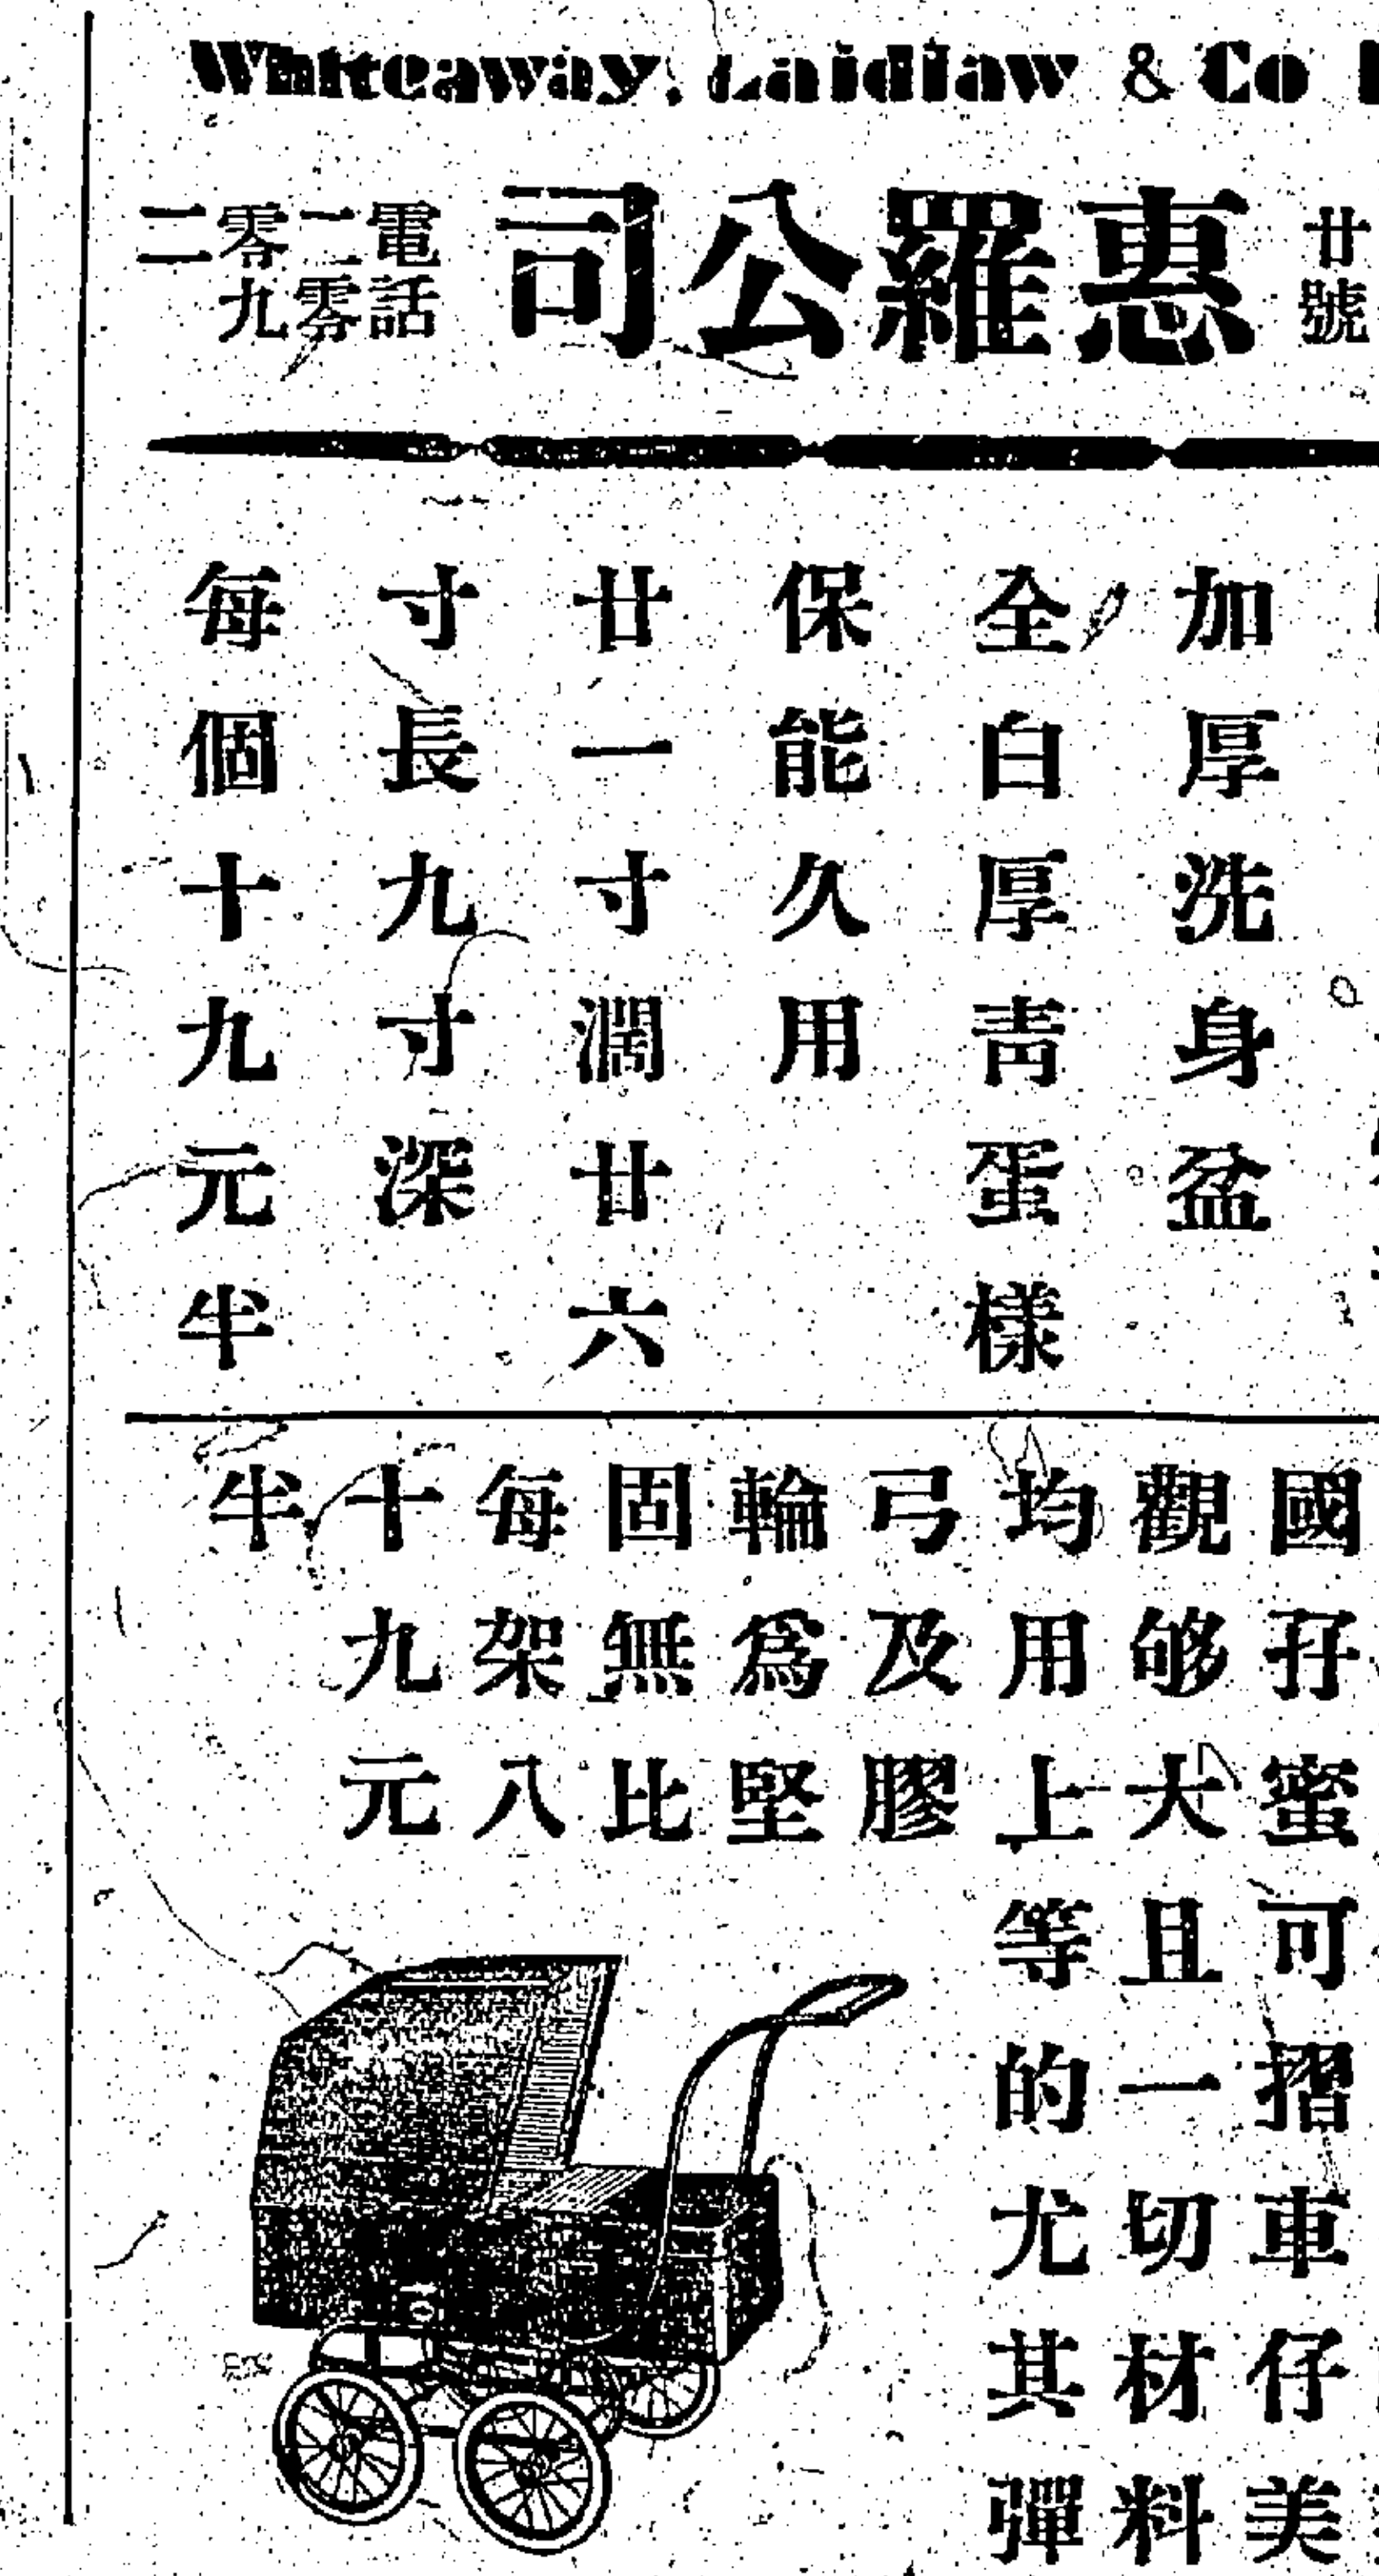 Whiteaway, Laidlaw & Co
廿號
惠羅公司
電話
二零
零九
二
加厚洗身盆
全白厚靑蛋樣
保能久用
廿一寸濶廿六
寸長九寸深
每個十九元半
國孖蜜可摺車仔美
觀够大且一切材料
均用上等的尤其彈
弓及膠
輪爲堅
固無比
每架八
十九元
半